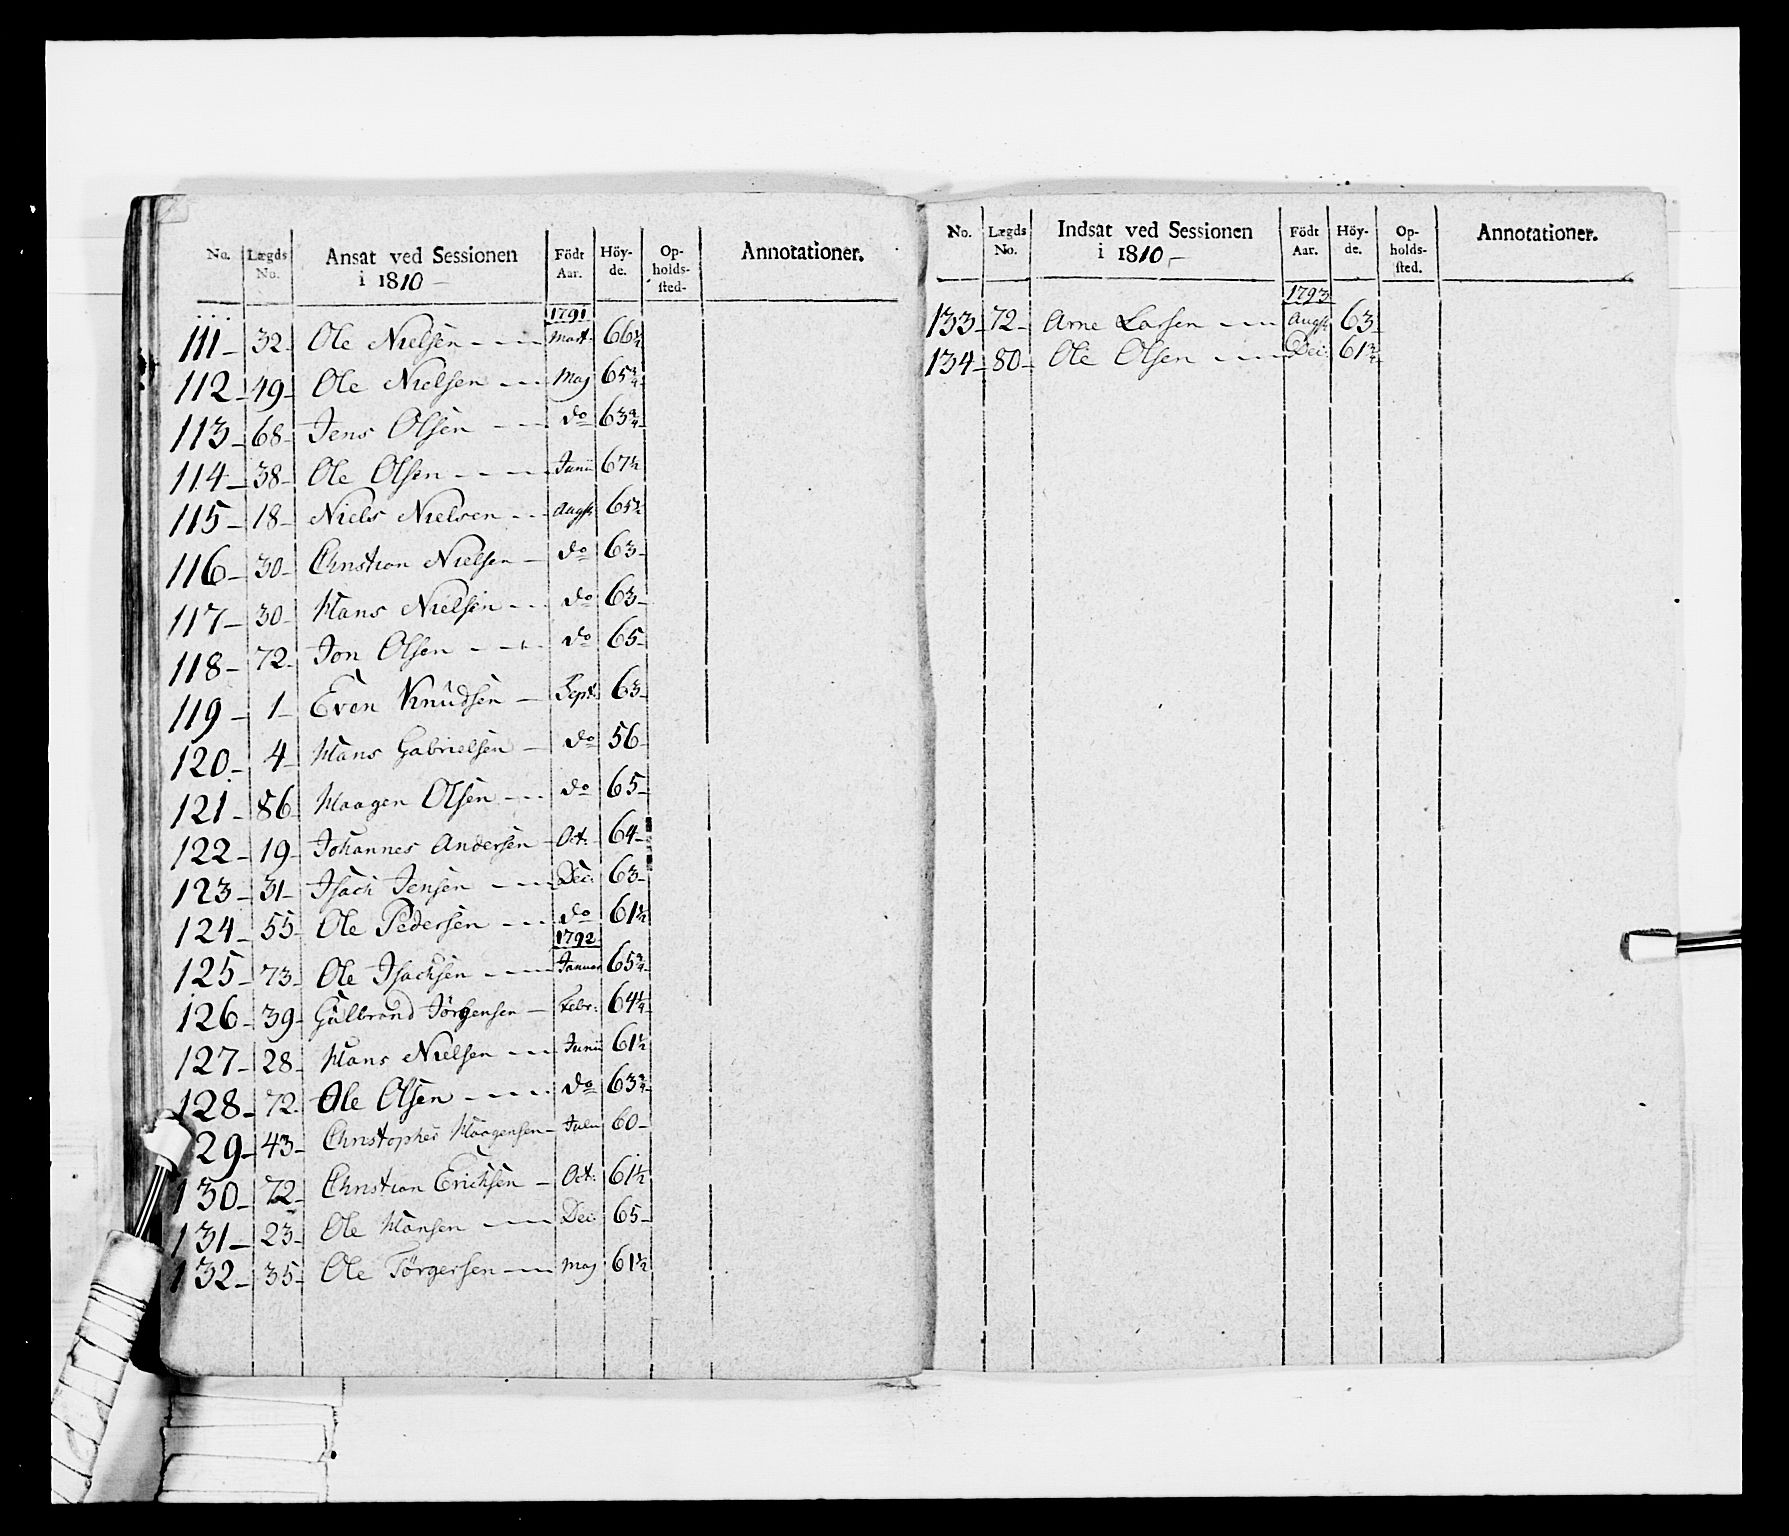 No. Lægds No. Ansat ved Sessionen i 1810 Födt Aar. Höy-de. Op-holds-sted. Annotationer.
1791
111 32 Ole Nielsen Mart. 66½
112 49 Ole Nielsen Maj 65¾
113 68 Jens Olsen do 63¾
114 38 Ole Olsen Junii 67½
115 18 Niels Nielsen Augst 65½
116 30 Christian Nielsen do 63
117 30 Hans Nielsen do 63
118 72 Jon Olsen do 65
119 1 Even Knudsen Sept. 63
120 4 Hans Gabrielsen do 56
121 86 Haagen Olsen do 65
122 19 Johannes Andersen Oct: 64
123 31 Isach Jensen Dec: 63
124 55 Ole Pedersen do 61½
1792
125 73 Ole Isachsen Januar 65¾
126 39 Gulbrand Jörgensen Febr: 64¼
127 28 Hans Nielsen Junii 61½
128 72 Ole Olsen do 63¾
29 43 Christopher Haagensen Julii 60
130 72 Christian Erichsen Oct: 61½
131 23 Ole Hansen Dec: 65
132 35 Ole Törgersen Maj 61½
No. Lægds No. Indsat ved Sessionen i 1810 Födt Aar. Höy-de. Op-holds-sted. Annotationer.
1793
133 72 Arne Larsen Augst 63
134 80 Ole Olsen Dec: 61¾